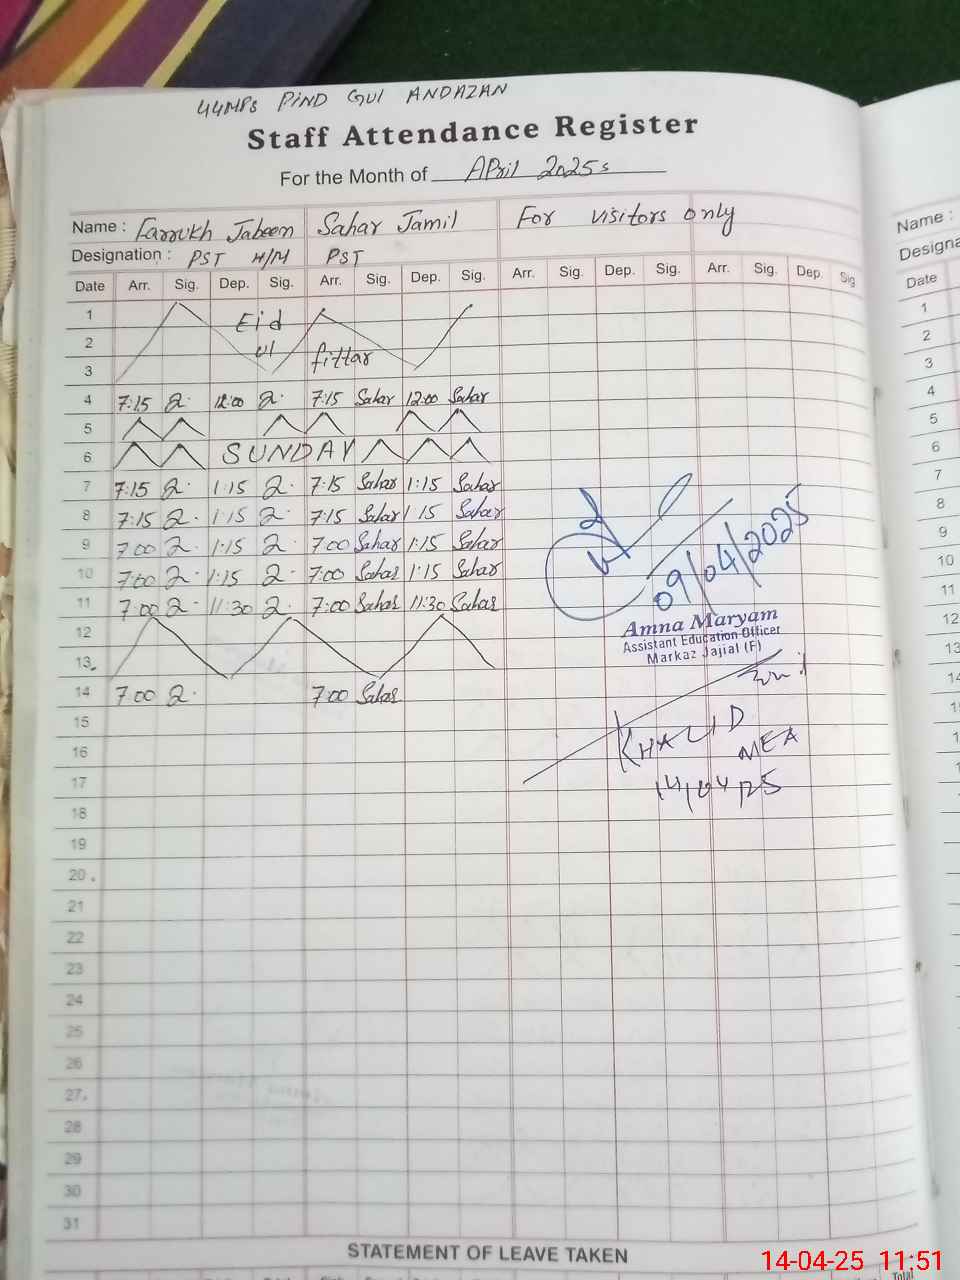 44MPS PIND GUL ANDAZAN
Staff Attendance Register
For the Month of April 2025s
Name : Farrukh Jabeen Sahar Jamil For visitors only
Designation : PST H/M PST
Date Arr. Sig. Dep. Sig. Arr. Sig. Dep. Sig. Arr. Sig. Dep. Sig. Arr. Sig. Dep. Sig
1 Eid
2 ul fittar
3
4 7:15 12:00 7:15 Sahar 12:00 Sahar
5
6 SUNDAY
7 7:15 1:15 7:15 Sahar 1:15 Sahar
8 7:15 1:15 7:15 Sahar 1 15 Sahar
9 7:00 1:15 7:00 Sahar 1:15 Sahar
10 7:00 1:15 7:00 Sahar 1:15 Sahar
11 7:00 11:30 7:00 Sahar 11:30 Sahar
12
13
14 7:00 7:00 Sahar
15
16
17
18
19
20
21
22
23
24
25
26
27
28
29
30
31
09/04/2025
Amna Maryam
Assistant Education Officer
Markaz Jajial (F)
KHALID
MEA
14/04/25
STATEMENT OF LEAVE TAKEN
Total
Name :
Designa
Date
1
2
3
4
5
6
7
8
9
10
11
12
13
14
14-04-25 11:51